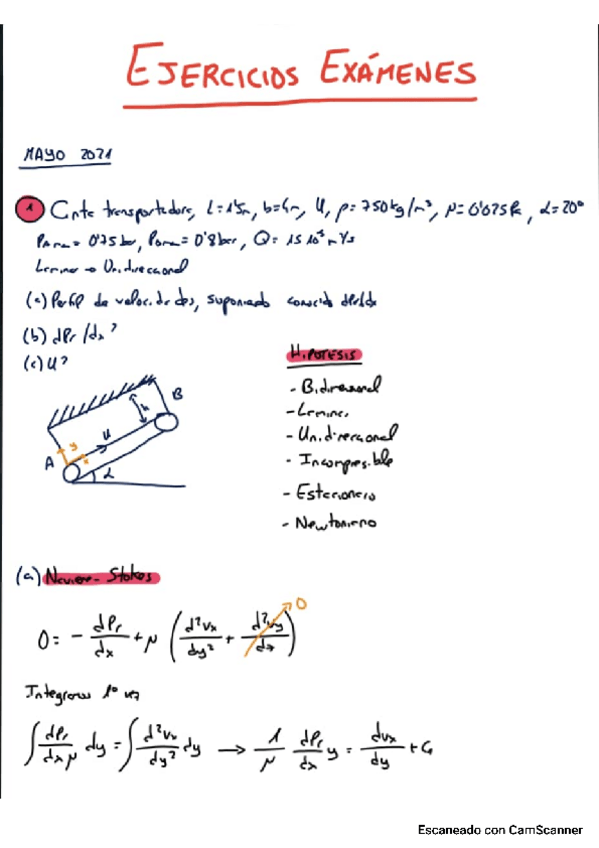 EJERCICIOS EXÁMENES
MAYO 2021
1 Cinta transportadora, L=1'5m, b=4m, U, ρ=750kg/m³, μ=0'075Pa, α=20º
PA man=0'75 bar, PB man=0'8 bar, Q=15 10⁻³ m³/s
Laminar → Unidireccional
(a) Perfil de velocidades, suponiendo conocida dPr/dx
(b) dPr/dx?
(c) U?
HIPÓTESIS
- Bidireccional
- Laminar
- Unidireccional
- Incompresible
- Estacionario
- Newtoniano
B
h
U
y
x
A
α
(a) Navier-Stokes
0 = - dPr/dx + μ (d²vx/dy² + d²vy/dx) 0
Integramos 1º vez
∫ dPr/dx μ dy = ∫ d²vx/dy² dy → 1/μ dPr/dx y = dvx/dy + C1
Escaneado con CamScanner